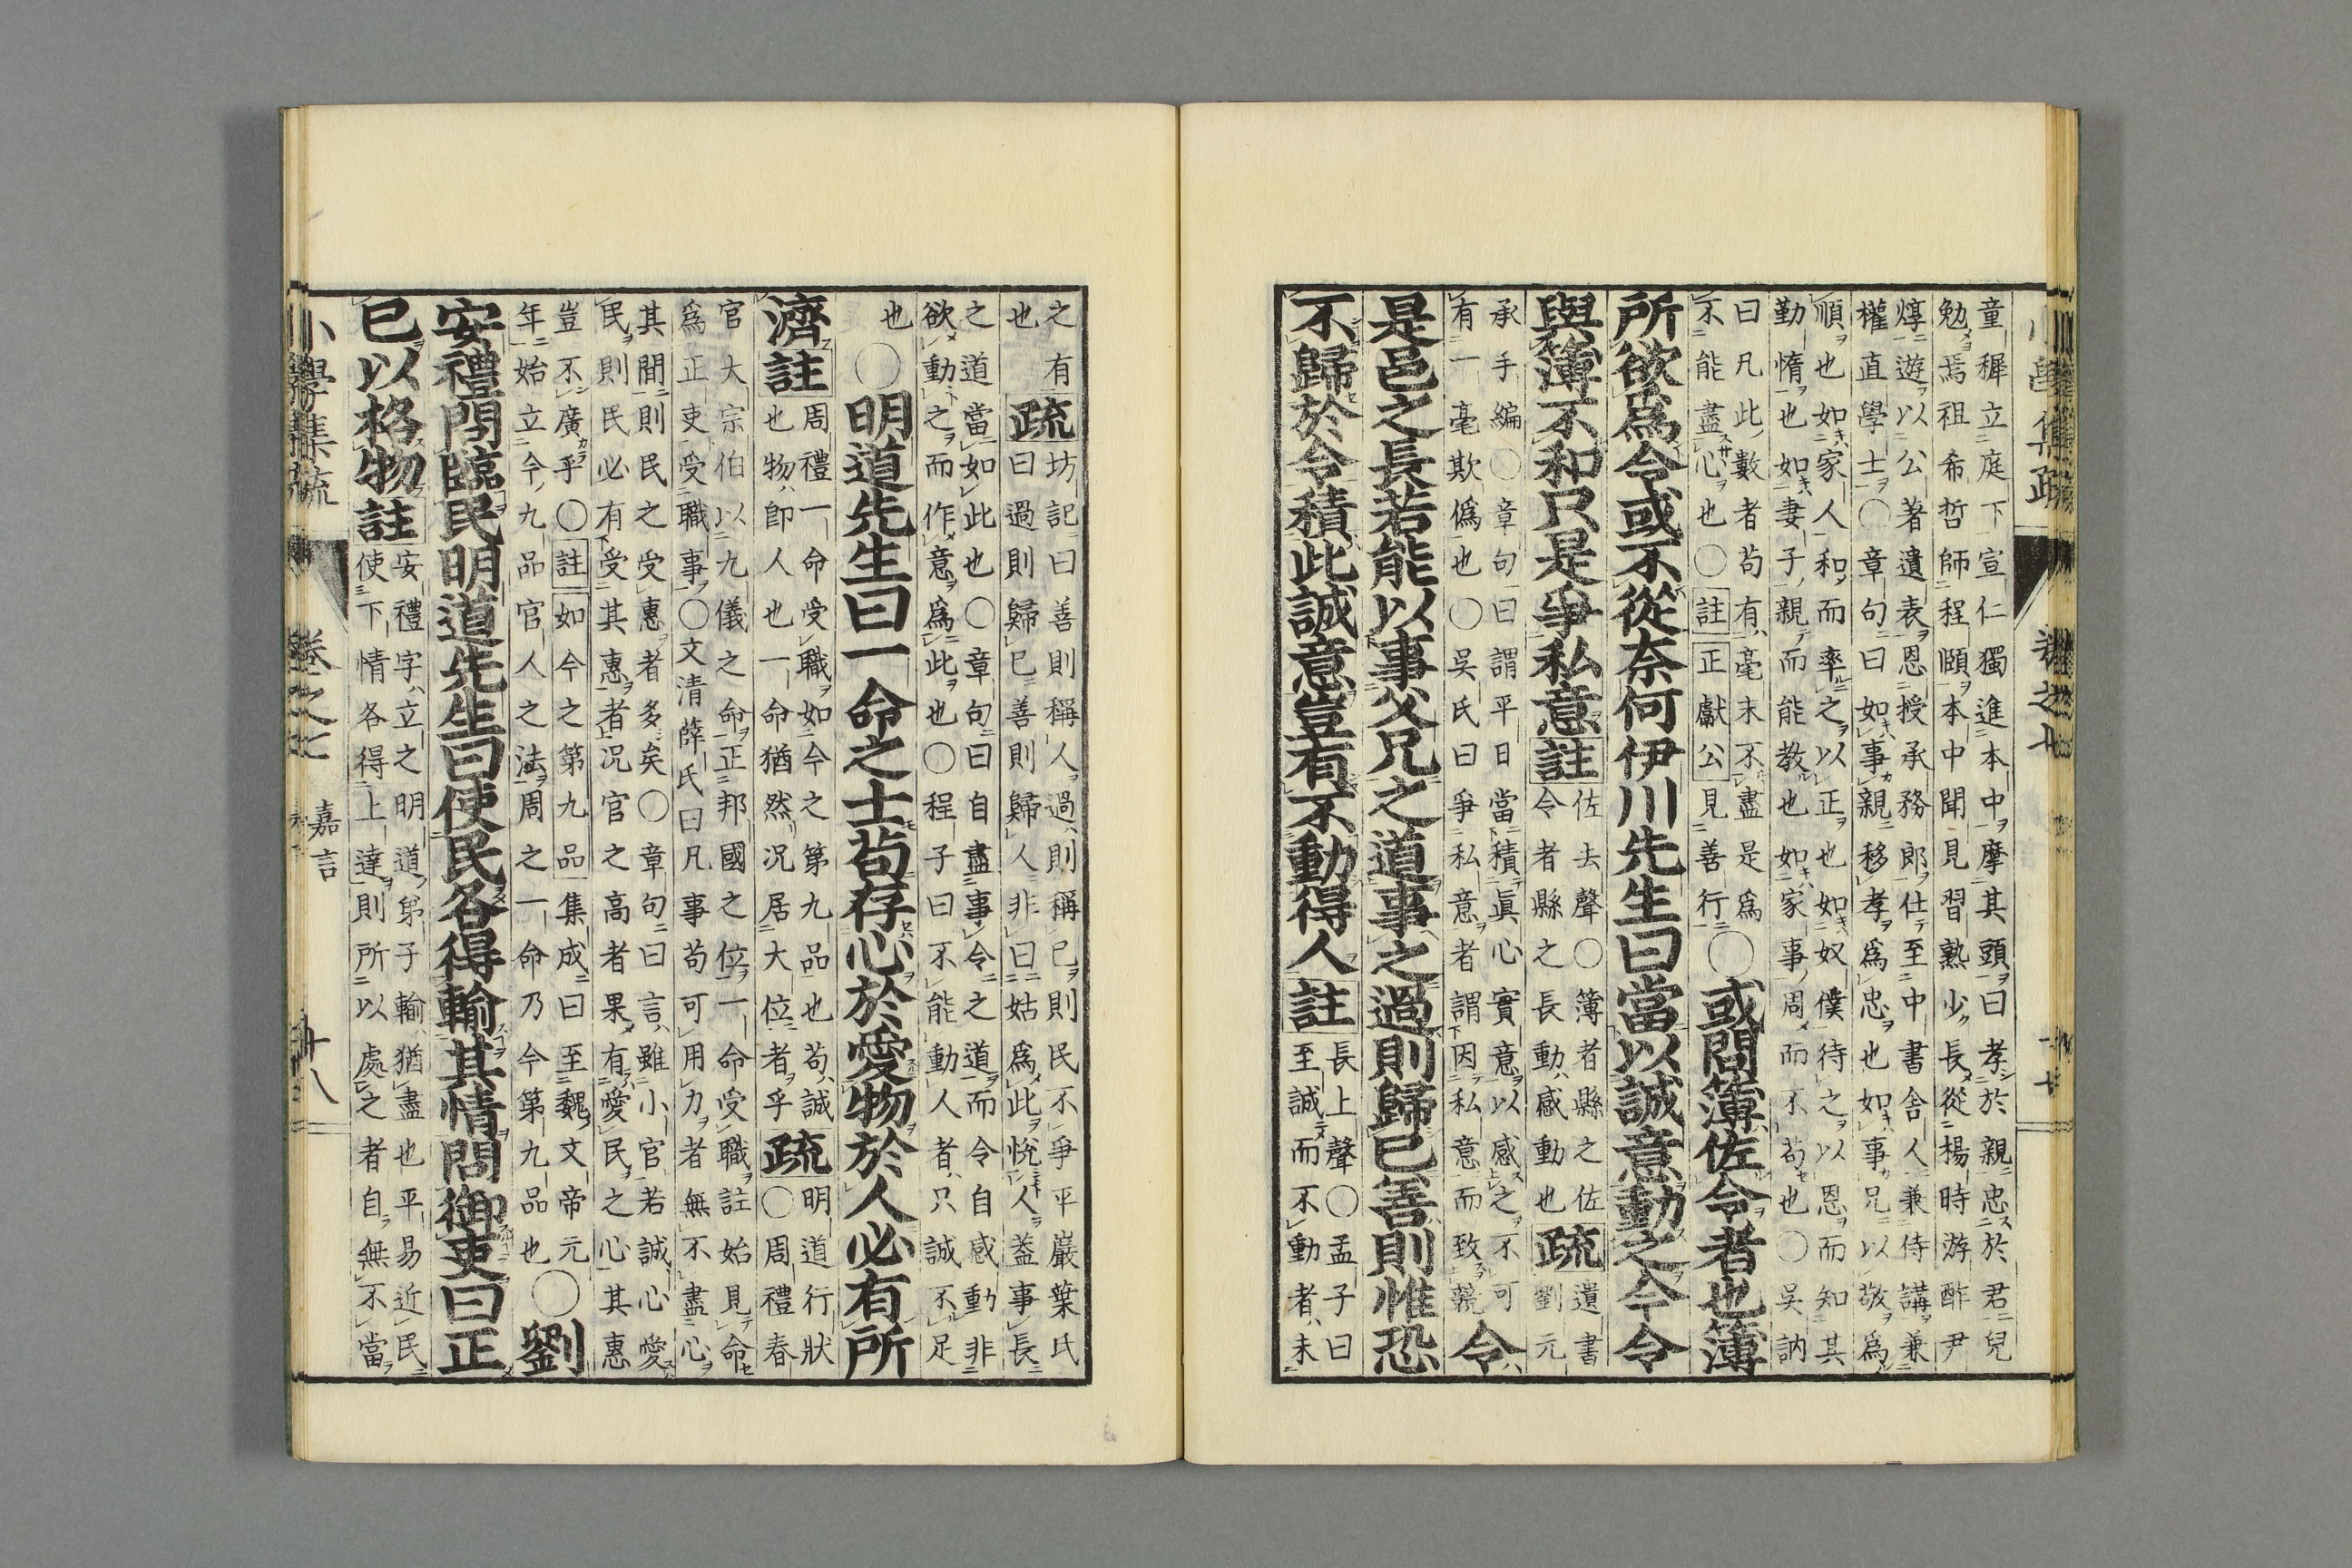 小學集疏 卷之七 十七
童穉立庭下宣仁獨進本中摩其頭曰孝於親忠於君兒
勉焉祖希哲師程頤本中聞見習熟少長從楊時游酢尹
焞遊以公著遺表恩授承務郎仕至中書舍人兼侍講兼
權直學士〇章句曰如事親移孝爲忠也如事兄以敬爲
順也如家人和而率之以正也如奴僕待之以恩而知其
勤惰也如妻子親而能教也如家事周而不苟也〇吳訥
曰凡此數者苟有毫末不盡是爲
不能盡心也〇註正獻公見善行
〇或問簿佐令者也簿
所欲爲令或不從奈何伊川先生曰當以誠意動之今令
與簿不和只是爭私意註
佐去聲〇簿者縣之佐
令者縣之長動感動也
疏
遺書
劉元
承手編〇章句曰謂平日當積眞心實意以感之不可
有一毫欺僞也〇吳氏曰爭私意者謂因私意而致競
令
是邑之長若能以事父兄之道事之過則歸已善則惟恐
不歸於令積此誠意豈有不動得人註
長上聲〇孟子曰
至誠而不動者未
之有
也
疏
坊記曰善則稱人過則稱已則民不爭平巖葉氏
曰過則歸已善則歸人非曰姑爲此悅人蓋事長
之道當如此也〇章句曰自盡事令之道而令自感動非
欲動之而作意爲此也〇程子曰不能動人者只誠不足
也
〇明道先生曰一命之士苟存心於愛物於人必有所
濟註
周禮一命受職如今之第九品也苟誠
也物卽人也一命猶然况居大位者乎
疏
明道行狀
〇周禮春
官大宗伯以九儀之命正邦國之位一命受職註始見命
爲正吏受職事〇文清薛氏曰凡事苟可用力者無不盡心
其間則民之受惠者多矣〇章句曰言雖小官若誠心愛
民則民必有受其惠者况官之高者果有愛民之心其惠
豈不廣乎〇註如今之第九品集成曰至魏文帝元
年始立今九品官人之法周之一命乃今第九品也
〇劉
安禮問臨民明道先生曰使民各得輸其情問御吏曰正
已以格物註
安禮字立之明道弟子輸猶盡也平易近民
使下情各得上達則所以處之者自無不當
小學集疏 卷之七 嘉言 十八